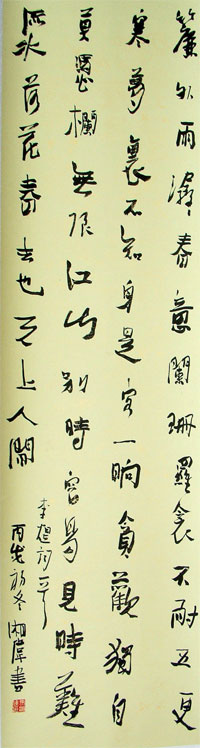 簾外雨潺々春意闌珊羅衾不耐五更
寒夢裏不知身是客一晌貪歡獨自
莫憑欄無限江山別時容易見時難
流水落花春去也天上人間
李煜詞一首
丙戌初冬湘偉書